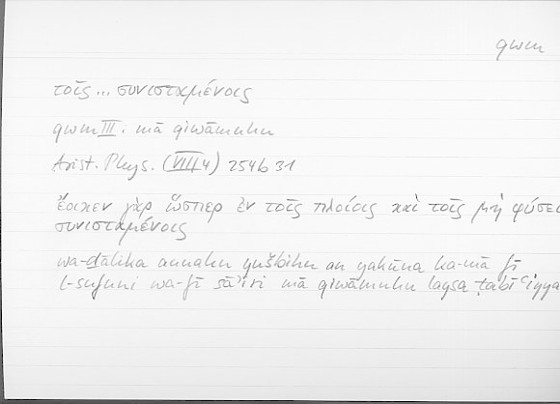 qwm
τοῖς... συνισταμένοις
qwm III. mā qiwāmuhu
Arist. Phys. (VIII 4) 254b31
ἔοικεν γὰρ ὥσπερ ἐν τοῖς πλοίοις καὶ τοῖς μὴ φύσει
συνισταμένοις
wa-ḏālika annahu yušbihu an yakūna ka-mā fī
l-sufuni wa-fī sāʾiri mā qiwāmuhu laysa ṭabīʿiyya